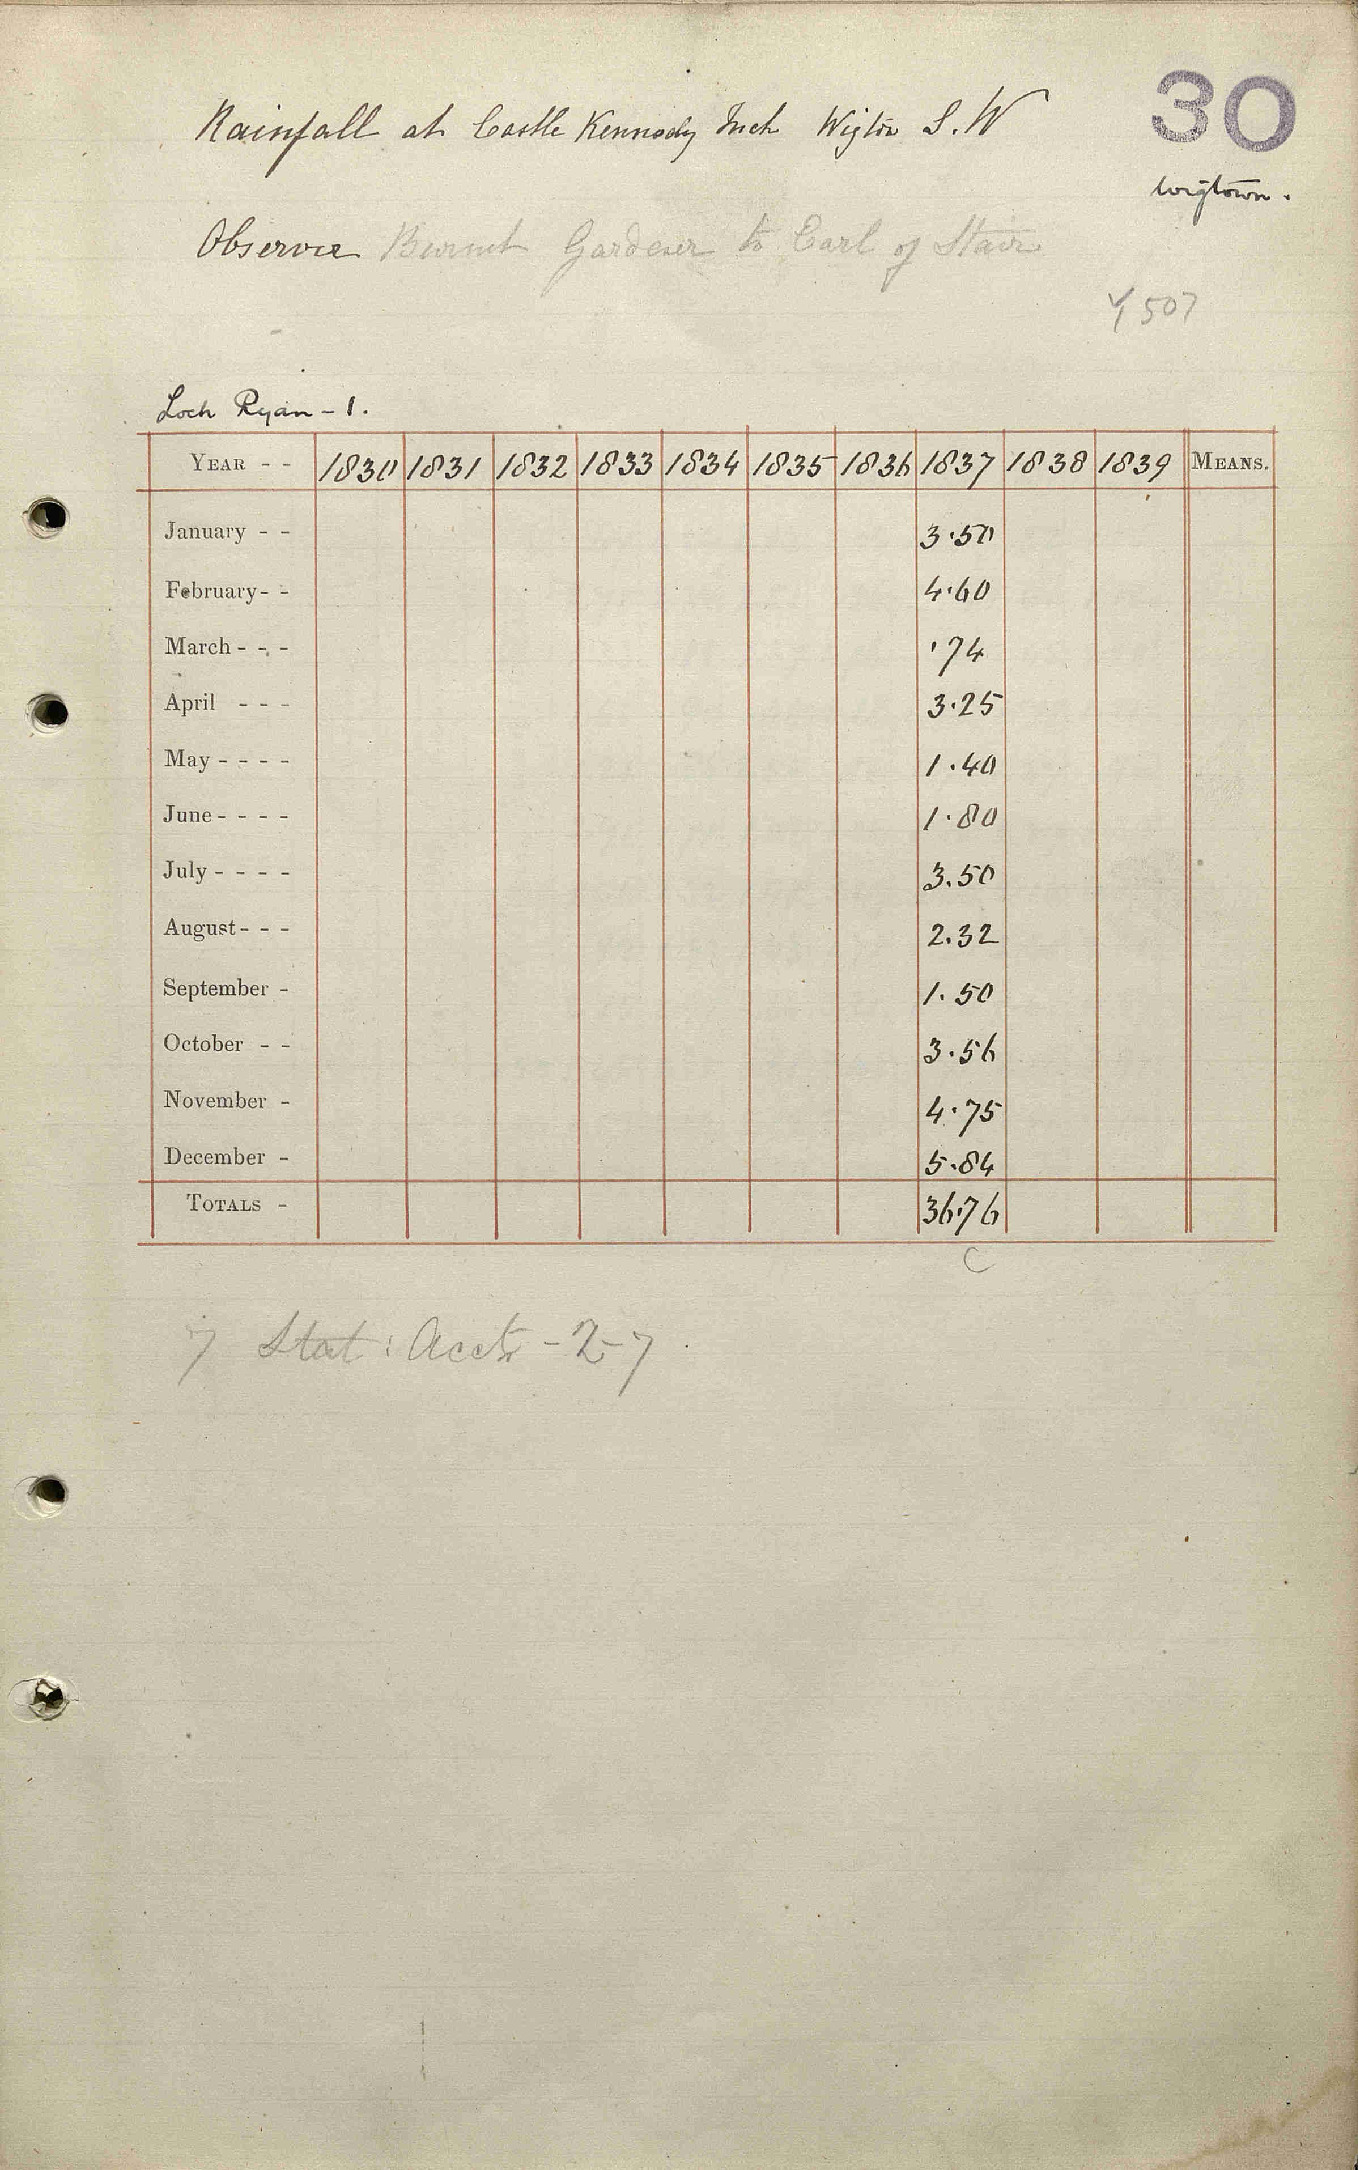 30
Rainfall at Castle Kennedy Inch Wigton S.W
Wigtown.
Observer Gardener to Earl of Stair
507
Loch Ryan - 1.
YEAR - - 1830 1831 1832 1833 1834 1835 1836 1837 1838 1839 MEANS.
January - - 3.50
February - - 4.60
March - - - .74
April - - - 3.25
May - - - - 1.40
June - - - - 1.80
July - - - - 3.50
August - - - 2.32
September - 1.50
October - - 3.56
November - 4.75
December - 5.84
TOTALS - 36.76
C
7 Stat: Acct - 2 - 7